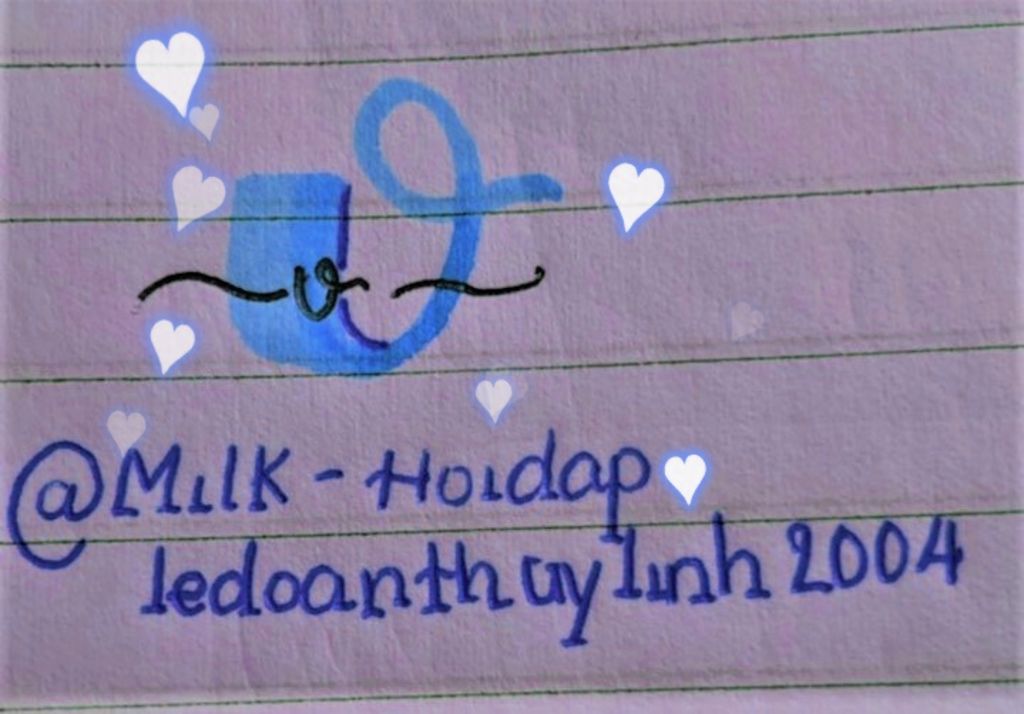 v
@Milk - Hoidap
ledoanthuylinh 2004